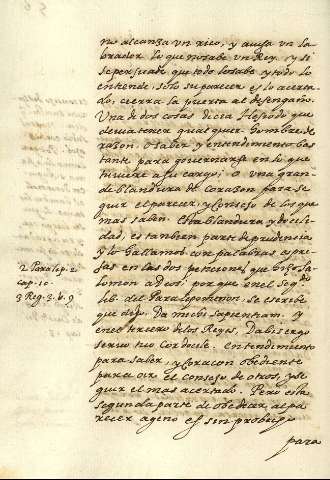 no alcanza vn rico, y auisa vn la
brador lo que no sabe vn Rey. y si
se persuade que todo lo sabe y todo lo
entiende, solo su parecer es lo acerta
do, cierra la puerta al desengaño.
Vna de dos cosas decia Hesiodo que
deuia tener qualquier hombre de
razon, o saber, y entendimiento bas
tante para gouernarse en lo que
tuuiere a su cargo; o vna gran
de blandura de corazon para se
guir el parecer, y consejo de los que
mas saben. Esta blandura, y docili
dad, es tanbien parte de prudencia
y lo hallamos con palabras expre
sas en las dos peticiones que hizo Sa
lomon a dios: porque en el segdo
lib. del Paralepomenon se escribe
que dijo. Da michi sapientiam. y
en el tercero de los Reyes. Dabis ergo
seruo tuo Cor docile. entendimiento
para saber, y corazon obediente
para oir el consejo de otros, y se
guir el mas acertado. Pero esta
segunda parte de obedecer, al pa
recer ageno es sin
para
2 Paralep. 2
cap. 10
3 Reg. 3. v. 9